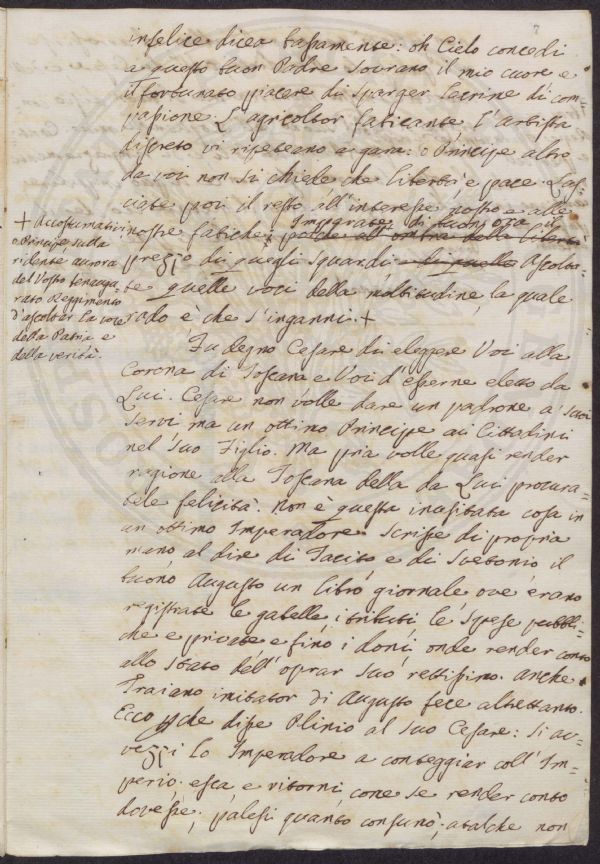 7
infelice dicea bassamente: oh Cielo concedi
a questo buon Padre Sovrano il mio cuore e
il fortunato piacere di sparger lacrime di com-
passione. L'agricoltor faticante l'artista
discreto vi ripeteano a gara: o Principe altro
da voi non si chiede che libertà e pace. Las-
ciate poi il resto all'interesse nostro e alle
nostre fatiche; poiche all'ombra della libertà
Imparate di buon' ora il
pregio di quegli sguardi di quella Ascolta-
te quelle voci della moltitudine la quale
rado è che s'inganni. +
+ Accostumatevi
o Principe sulla
ridente aurora
del Vostro
Reggimento
d'ascoltar la voce
della Patria e
della verità.
Fu degno Cesare di eleggere Voi alla
Corona di Toscana e Voi d'esserne eletto da
Lui. Cesare non volle dare un padrone a' suoi
servi ma un ottimo Principe ai Cittadini
nel suo Figlio. Ma pria volle quasi render
ragione alla Toscana della da Lui procura-
tale felicità. Non è questa inusitata cosa in
un ottimo Imperadore. Scrisse di propria
mano al dire di Tacito e di Svetonio il
buono Augusto un libro giornale ove erano
registrate le gabelle i tributi le spese pubbli-
che e private e fino i doni, onde render conto
allo Stato dell'oprar suo rettissimo. Anche
Traiano imitator di Augusto fece altrettanto.
Ecco che disse Plinio al suo Cesare: Si av-
vezzi lo Imperadore a conteggiar coll'Im-
perio. esca e ritorni come se render conto
dovesse; palesi quanto consumò; atalche non